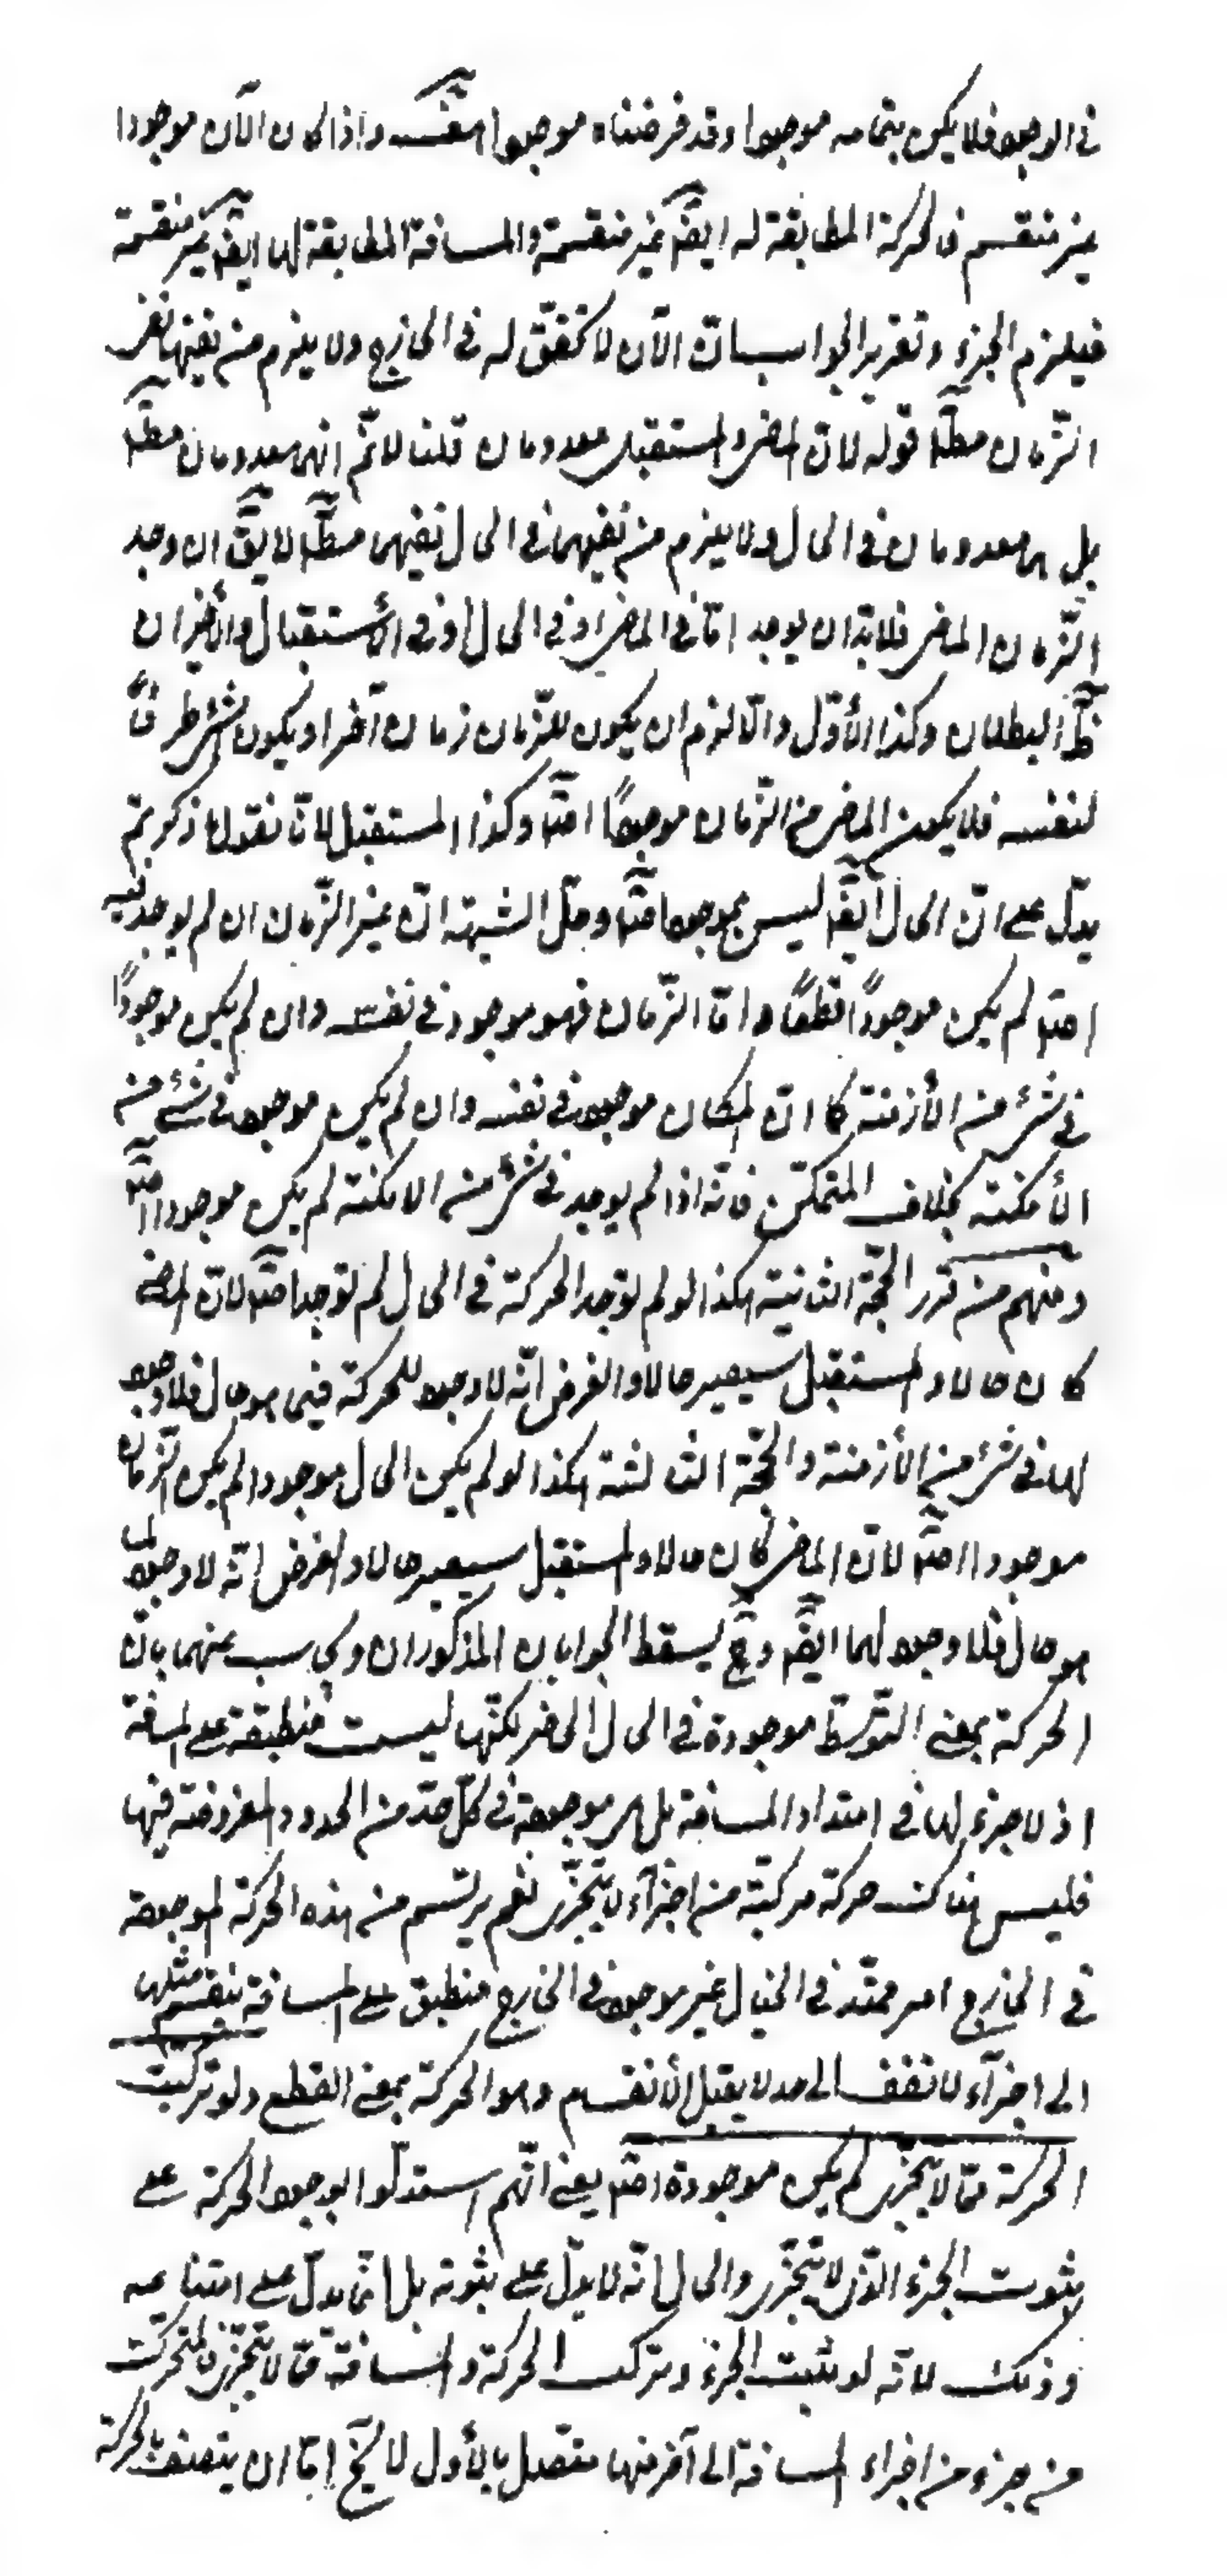 فى الوجود فلا يكون بتمامه موجودا وقد فرضناه موجودا هف واذا كان الآن موجودا
غير منقسم فالحركة المطابقة له ايضا غير منقسمة والمسافة المطابقة لها ايضا غير منقسمة
فيلزم الجزء وتقرير الجواب انّ الآن لا تحقّق له فى الخارج ولا يلزم من نفيها نفى
الزّمان مطلقا قوله لانّ الماضى والمستقبل معدومان قلنا لا نمّ انهما معدومان مطلقا
بل هما معدومان فى الحال ولا يلزم من نفيهما فى الحال نفيهما مطلقا لا يقّ ان وجد
الزّمان الماضى فلا بدّ ان يوجد امّا فى الماضى او فى الحال او فى الأستقبال والأخيران
ظّ البطلان وكذا الأوّل والّا لزم ان يكون للزّمان زمان آخر او يكون الشئ ظرفاً
لنفسه فلا يكون الماضى من الزّمان موجودًا اصّلا وكذا المستقبل لانّا نقول ما ذكرتم
يدلّ على انّ الحال ايضا ليس بموجود اصلا وحلّ الشبهة انّ غير الزّمان ان لم يوجد فيه
اصلا لم يكن موجودًا قطعًا وامّا الزّمان فهو موجود فى نفسه وان لم يكن موجودًا
فى شئ من الأزمنة كما انّ المكان موجود فى نفسه وان لم يكن موجودا فى شئ من
الأمكنة بخلاف المتمكّن فانّه اذا لم يوجد فى شئ من الامكنة لم يكن موجودا اصلا
ومنهم من قرّر الحجّة الثانية هكذا لو لم توجد الحركة فى الحال لم توجد اصلا لانّ الماضى
كان حالا والمستقبل سيصير حالا والفرض انّه لا وجود للحركة فيما هو حال فلا وجود
لها فى شئ من الأزمنة والحجّة الثالثة هكذا لو لم يكن الحال موجودا لم يكن الزّمان
موجودا اصلا لانّ الماضى كان حالا والمستقبل سيصير حالا والفرض انّه لا وجود لما
هو حال فلا وجود لهما ايضا وحّ يسقط الجوابان المذكوران ويجاب عنهما بانّ
الحركة بمعنى التّوسّط موجودة فى الحال الحاضر لكنّها ليست منطبقة على المسافة
اذ لا جزء لها فى امتداد المسافة بل هى موجودة فى كلّ حدّ من الحدود المفروضة فيها
فليس هناك حركة مركبّة من اجزآء لا تتجزّى نعم يرتسم من هذه الحركة الموجودة
فى الخارج امر ممتدّ فى الخيال غير موجود فى الخارج منطبق على المسافة ينقسم مثلها
الى اجزآء لا تقف الى حد لا يقبل الأنقسام وهو الحركة بمعنى القطع ولو تركبت
الحركة ممّا لا يتجزى لم يكن موجودة اصلا يعنى انّهم استدلّوا بوجود الحركة على
ثبوت الجزء الّذى لا يتجزّى والحال انّه لا يدلّ على ثبوته بل انّما يدلّ على امتناعه
وذلك لانّه لو ثبت الجزء وتركب الحركة والمسافة ممّا لا يتجزّى فالمتحرّك
من جزء من اجزاء المسافة الى آخر منها متصل بالأول لا يخ امّا ان يتصف بالحركة